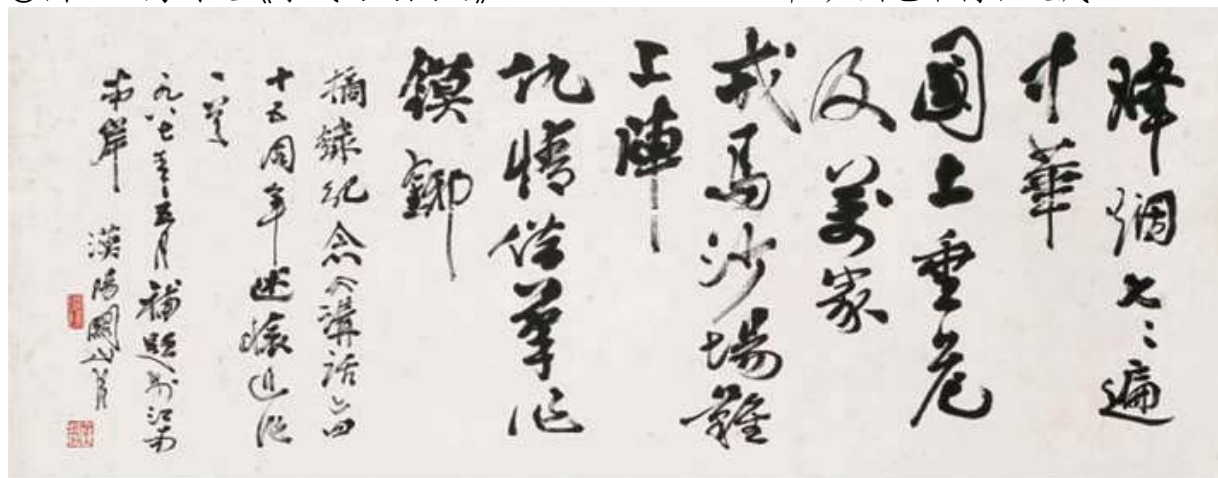 烽烟七〻遍
中華
國土重危
及萬家
戎馬沙場難
上陣
情借筆作
鏌鋣
摘錄紀念講話四
十五周年述懷近作
一首
一九八七年五月補題於
南岸 漠陽關山月